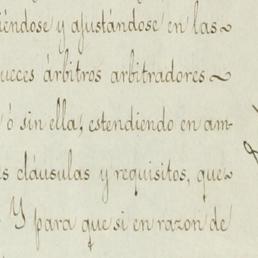 iéndose y ajustándose en las~
ueces árbitros arbitradores~
ó sin ella, estendiendo en am-
s cláusulas y requisitos, que~
Y para que si en razon de